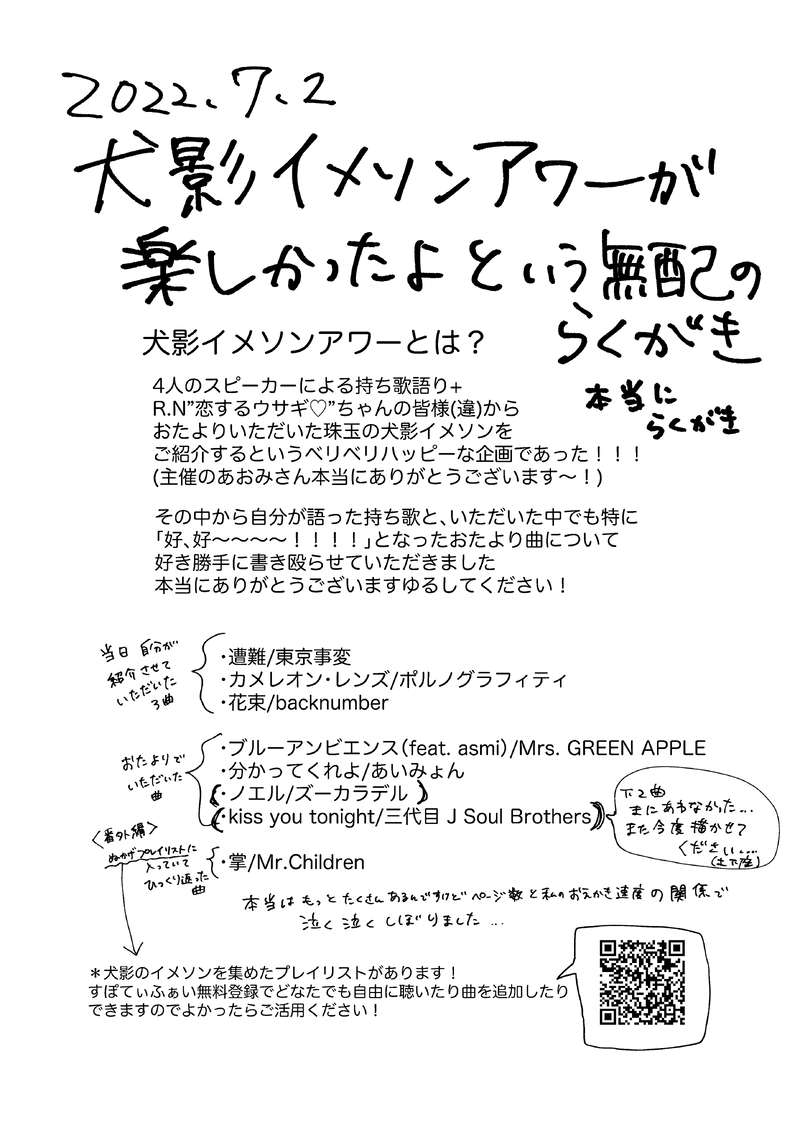 2022.7.2
犬影イメソンアワーが
楽しかったよという無配の
らくがき
本当に
らくがき
犬影イメソンアワーとは？
4人のスピーカーによる持ち歌語り+
R.N”恋するウサギ♡”ちゃんの皆様(違)から
おたよりいただいた珠玉の犬影イメソンを
ご紹介するというベリベリハッピーな企画であった！！！
(主催のあおみさん本当にありがとうございます〜！)
その中から自分が語った持ち歌と、いただいた中でも特に
「好、好〜〜〜〜！！！！」となったおたより曲について
好き勝手に書き殴らせていただきました
本当にありがとうございますゆるしてください！
当日 自分が
紹介させて
いただいた
3曲
・遭難/東京事変
・カメレオン・レンズ/ポルノグラフィティ
・花束/backnumber
おたよりで
いただいた
曲
・ブルーアンビエンス(feat. asmi)/Mrs. GREEN APPLE
・分かってくれよ/あいみょん
(・ノエル/ズーカラデル)
(・kiss you tonight/三代目 J Soul Brothers)
下2曲
まにあわなかった...
また今度描かせて
ください...
(土下座)
〈番外編〉
ぬかげプレイリストに
入っていて
ひっくり返った
曲
・掌/Mr.Children
本当はもっとたくさんあるんですけどページ数と私のおえかき速度の関係で
泣く泣くしぼりました...
＊犬影のイメソンを集めたプレイリストがあります！
すぽてぃふぁい無料登録でどなたでも自由に聴いたり曲を追加したり
できますのでよかったらご活用ください！